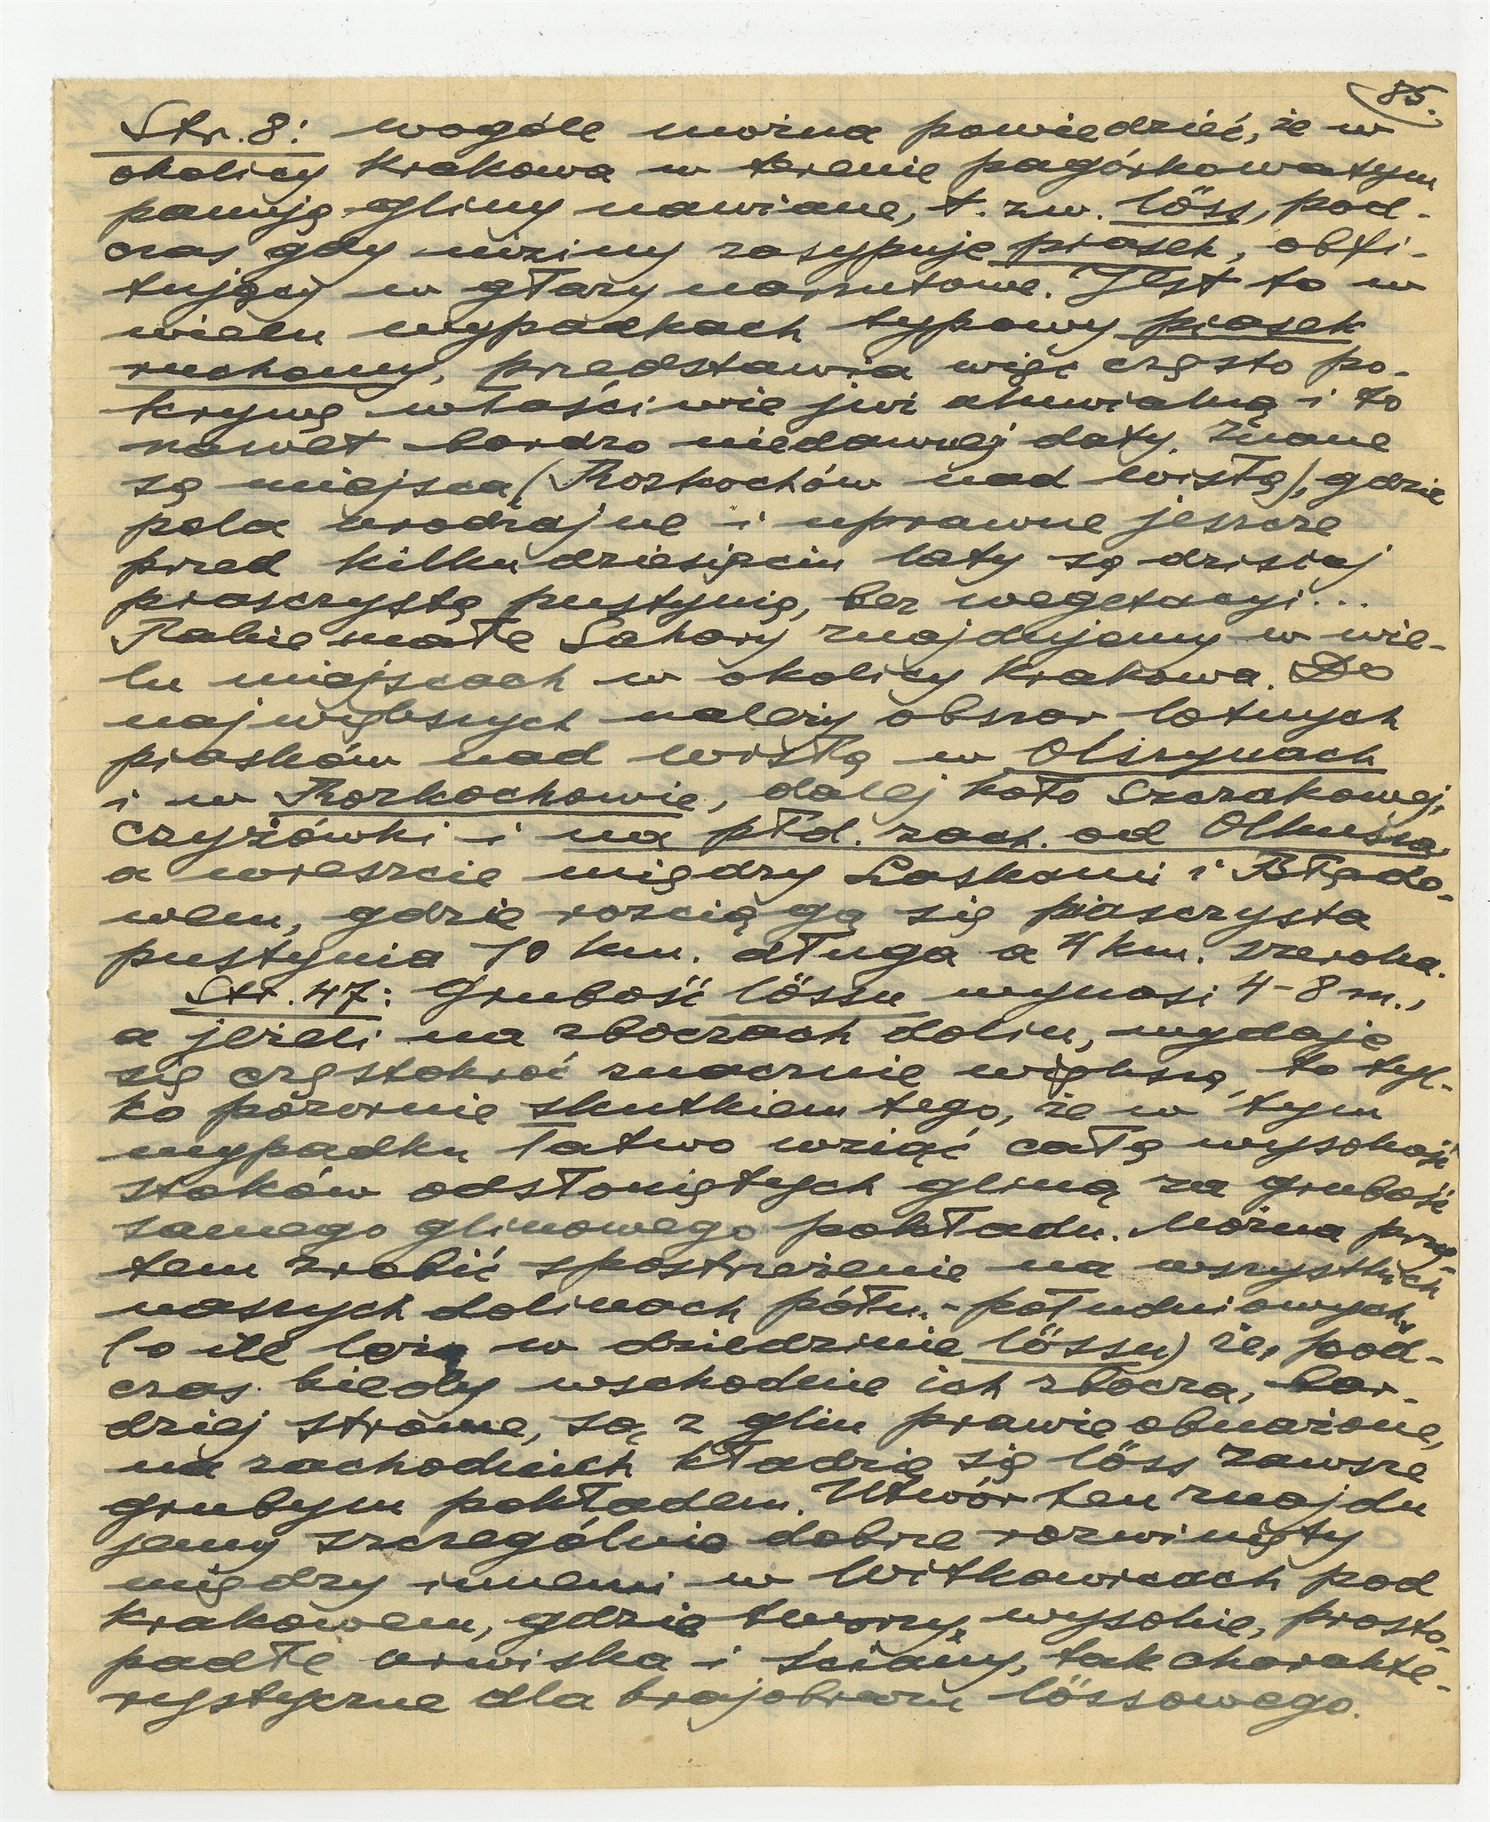 85.
Str. 8: wogóle można powiedzieć, że w
okolicy Krakowa w terenie pagórkowatym
panują gliny nawiane, t. zw. löss, pod-
czas gdy niziny zasypuje piasek, obfi-
tujący w głazy narzutowe. Jest to w
wielu wypadkach typowy piasek
ruchomy, przedstawia więc często po-
krywę właściwie już aluwialną i to
nawet bardzo niedawnej daty. Znane
są miejsca (Rozkochów nad Wisłą), gdzie
pola urodzajne i uprawne jeszcze
przed kilkudziesięciu laty są dzisiaj
piaszczystą pustynią, bez wegetacyi...
Takie małe Sahary znajdujemy w wie-
lu miejscach w okolicy Krakowa. Do
największych należy obszar lotnych
piasków nad Wisłą w Olszynach
i w Rozkochowie, dalej koło Szczakowej,
Czyżówki i na płd. zach. od Olkusza,
a wreszcie między Laskami i Błędo-
wem, gdzie rozciąga się piaszczysta
pustynia 10 km. długa a 4 km. szeroka.
Str. 47: Grubość lössu wynosi 4-8 m.,
a jeżeli na zboczach dolin, wydaje
się częstokroć znacznie większą, to tyl-
ko pozornie skutkiem tego, że w tym
wypadku łatwo wziąć całą wysokość
stoków odsłoniętych gliną za grubość
samego glinowego pokładu. Można przy-
tem zrobić spostrzeżenie na wszystkich
naszych dolinach półn.-południowych,
(o ile leżą w dziedzinie lössu) że, pod-
czas kiedy wschodnie ich zbocza, bar-
dziej strome, są z glin prawie obnażone,
na zachodnich kładzie się löss zawsze
grubym pokładem. Utwór ten znajdu
jemy szczególnie dobrze rozwinięty
między innemi w Witkowicach pod
Krakowem, gdzie tworzy wysokie, prosto-
padłe urwiska i ściany, tak charakte-
rystyczne dla krajobrazu lössowego.